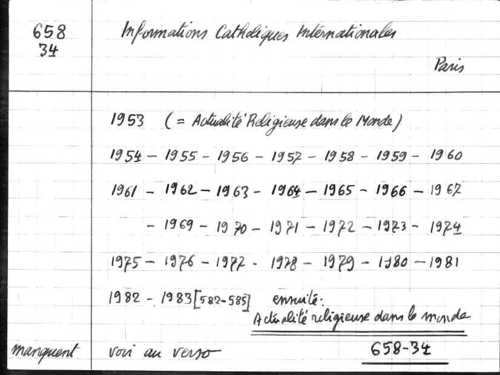 658
34
Informations Catholiques Internationales
Paris
1953 (= Actualité Religieuse dans le Monde)
1954 - 1955 - 1956 - 1957 - 1958 - 1959 - 1960
1961 - 1962 - 1963 - 1964 - 1965 - 1966 - 1967
- 1969 - 1970 - 1971 - 1972 - 1973 - 1974
1975 - 1976 - 1977 - 1978 - 1979 - 1980 - 1981
1982 - 1983 [582-585] ensuite:
Actualité religieuse dans le monde
658-34
manquent voir au verso